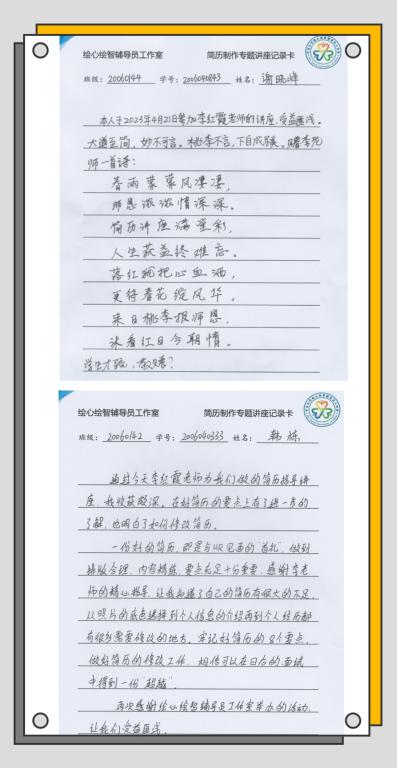 绘心绘智辅导员工作室 简历制作专题讲座记录卡
班级：20060144 学号：2006040843 姓名：谢晓峰
本人于2023年4月21日参加李红霞老师的讲座，受益匪浅。
大道至简，妙不可言。桃李不言，下自成蹊。赠李老
师一首诗：
春雨蒙蒙风凄凄，
师恩浓浓情深深。
简历讲座满堂彩，
人生获益终难忘。
落红把心血洒，
更待春花绽风华。
来日桃李报师恩，
沐春红日今朝情。
学生才疏，
绘心绘智辅导员工作室 简历制作专题讲座记录卡
班级：20060142 学号：2006040333 姓名：韩栋
通过今天李红霞老师为我们做的简历指导讲
座，我收获颇深。在好简历的要点上有了进一步的
了解，也明白了如何修改简历。
一份好的简历，即是与HR见面的“首礼”，做到
排版合理，内容精练，要点充足十分重要。感谢李老
师的精心指导，让我知道了自己的简历有很大的不足，
从照片的底色选择到个人信息的介绍再到个人经历都
有很多需要修改的地方。牢记好简历的8个要点，
做好简历的修改工作，相信可以在日后的面试
中得到一份“超越”。
再次感谢绘心绘智辅导员工作室举办的活动，
让我们受益匪浅。